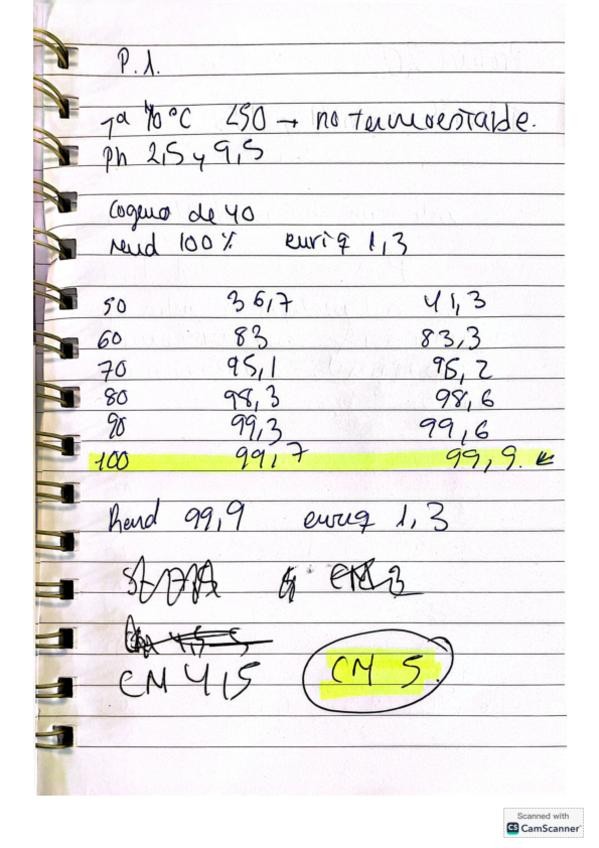 P.I.
Tª 40°C <50 → no termoestable.
Ph 2,5 y 9,5
cogemos de 40
rend 100% enriq 1,3
50 36,7 41,3
60 83 83,3
70 95,1 95,2
80 98,3 98,6
90 99,3 99,6
100 99,7 99,9. ←
Rend 99,9 enriq 1,3
CM 4,5 CM 5.
Scanned with
CS CamScanner